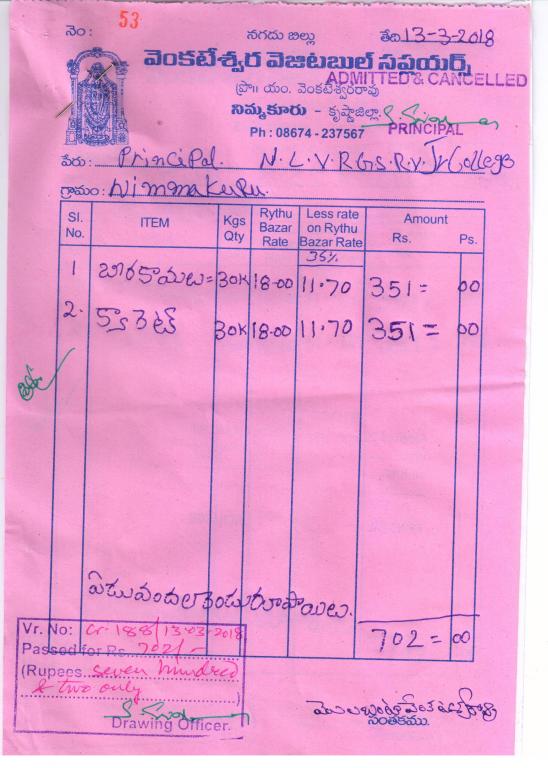 నెం: 53 నగదు బిల్లు తేది 13-3-2018
వెంకటేశ్వర వెజిటబుల్ సప్లయర్స్
ADMITTED & CANCELLED
ప్రొ॥ యం. వెంకటేశ్వరరావు
నిమ్మకూరు - కృష్ణాజిల్లా.
Ph : 08674 - 237567 PRINCIPAL
పేరు : Principal. N.L.V.R.GS.R.V.Jr College
గ్రామం : Nimmakuru.
Sl. No. ITEM Kgs Qty Rythu Bazar Rate Less rate on Rythu Bazar Rate Amount Rs. Ps.
35%
1 బీరకాయలు = 30K 18-00 11.70 351= 00
2. క్యారెట్ 30K 18-00 11.70 351= 00
ఏడువందల రెండు రూపాయిలు.
702= 00
Vr. No: Cr-188/13-03-2018
Passed for Rs. 702/-
(Rupees seven hundred
& two only )
Drawing Officer.
సంతకము.